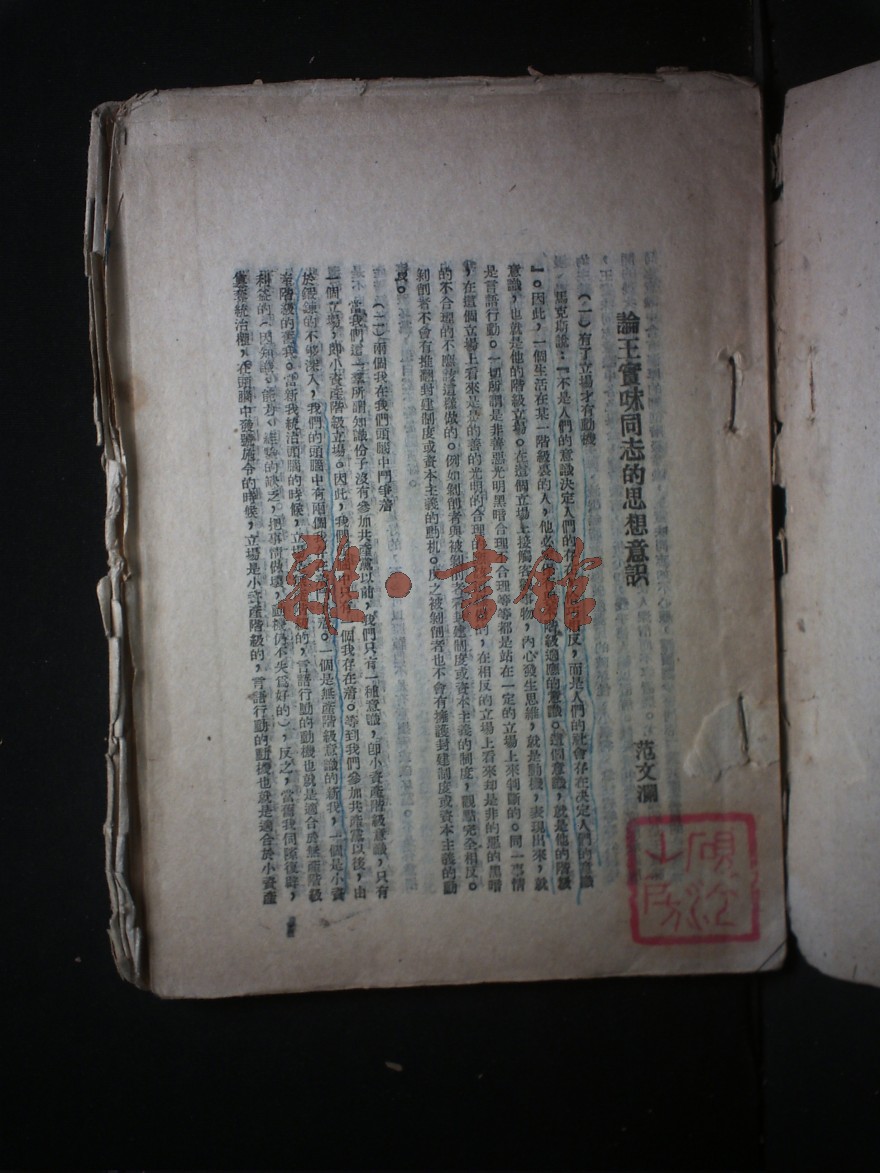 論王實味同志的思想意識
范文瀾
(一)有了立場才有動機
馬克斯說:『不是人們的意識決定人們的存在,相反,而是人們的社會存在決定人們的意識
』。因此,一個生活在某一階級裏的人,他必 階級適應的意識。這個意識,就是他的階級
意識,也就是他的階級立場。在這個立場上接觸客觀事物,內心發生思維,就是動機,表現出來,就
是言語行動。一切所謂是非善惡光明黑暗合理不合理等等都是站在一定的立場上來判斷的。同一事情
,在這個立場上看來是是的善的光明的合理的 的,在相反的立場上看來却是非的惡的黑暗
的不合理的不應該這樣做的。例如剝削者與被剝削者看封建制度或資本主義的制度,觀點完全相反。
剝削者不會有推翻封建制度或資本主義的動机。反之被剝削者也不會有擁護封建制度或資本主義的動
機。
(二)兩個我在我們頭腦中鬥爭着
當我們這一羣所謂知識份子沒有參加共產黨以前,我們只有一種意識,即小資產階級意識,只有
一個立場,即小資產階級立場。因此,我們 中只有 個我存在着。等到我們參加共產黨以後,由
於鍛鍊的不够深入,我們的頭腦中有兩個我 着。一個是無產階級意識的新我,一個是小資
產階級的舊我。當新我統治頭腦的時候,立 的,言語行動的動機也就是適合於無產階級
利益的(因知識、能力、經驗的缺乏,把事情做壞,動機仍不失爲好的),反之,當舊我伺隙復辟,
奪統治權,在頭腦中發號施令的時候,立場是小資產階級的,言語行動的動機也就是適合於小資產
雜·書館